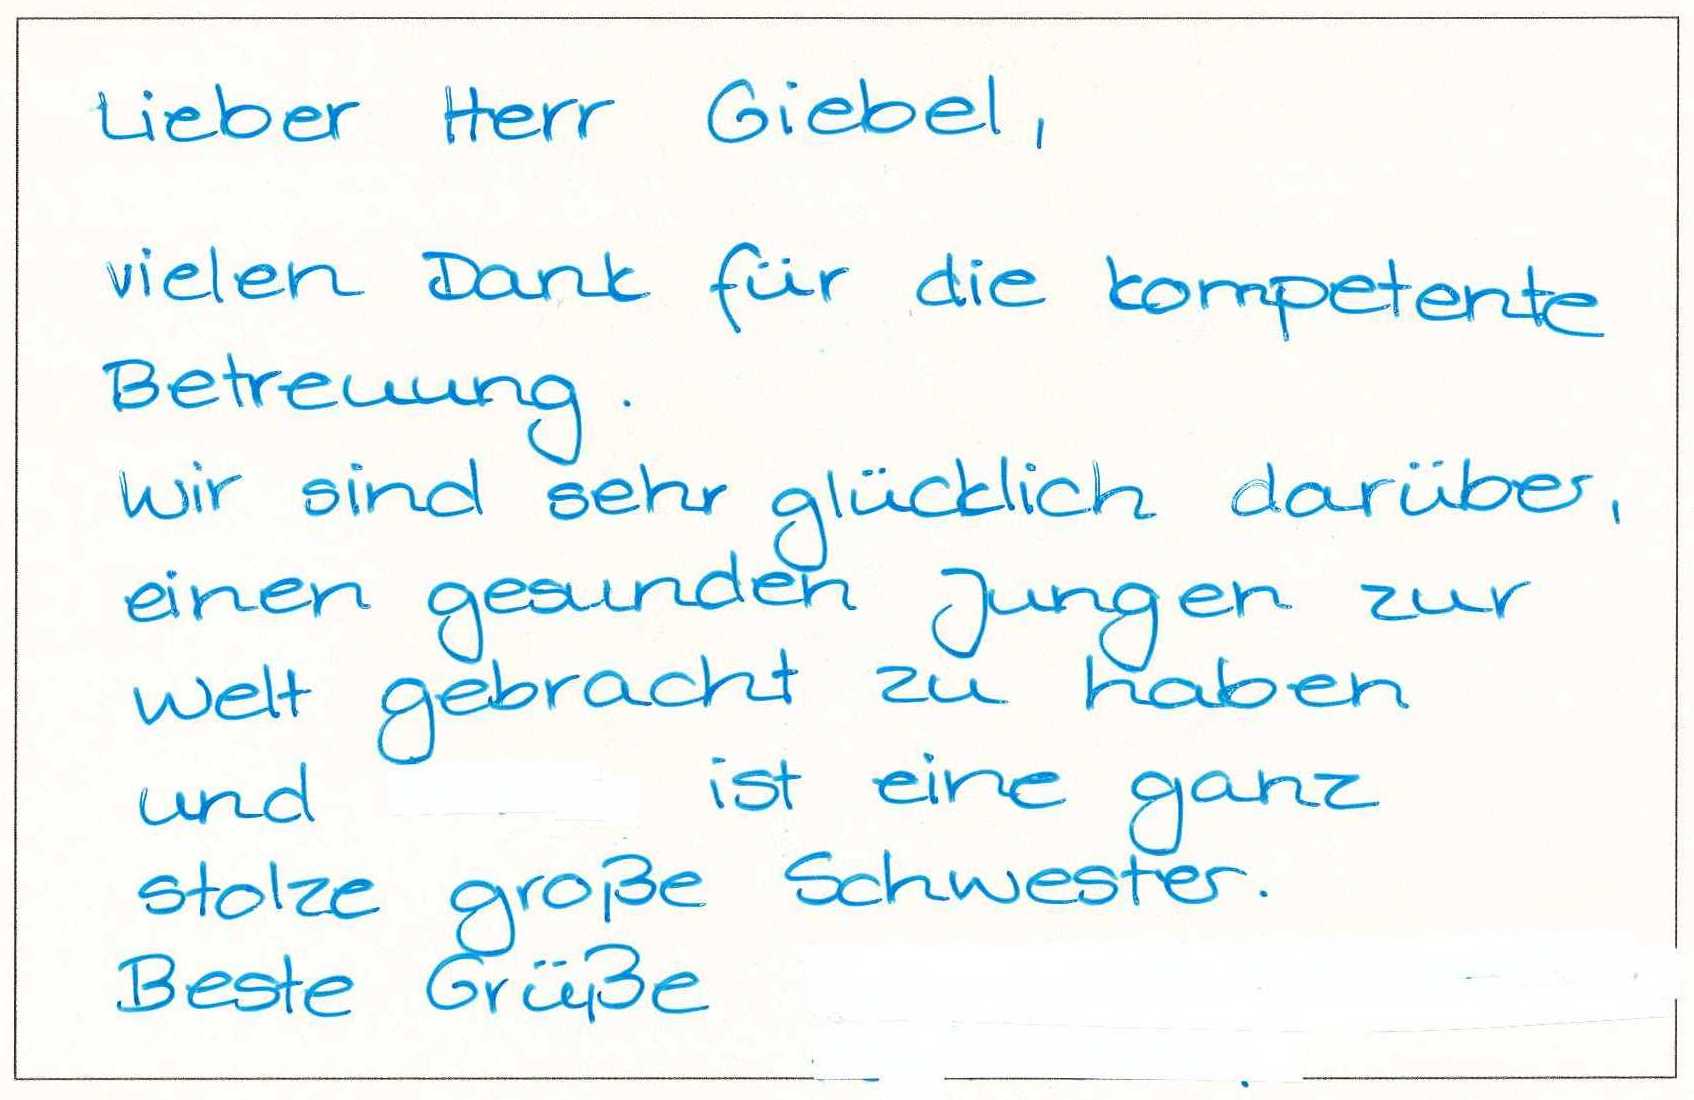 Lieber Herr Giebel,
vielen Dank für die kompetente
Betreuung.
Wir sind sehr glücklich darüber,
einen gesunden Jungen zur
Welt gebracht zu haben
und ist eine ganz
stolze große Schwester.
Beste Grüße